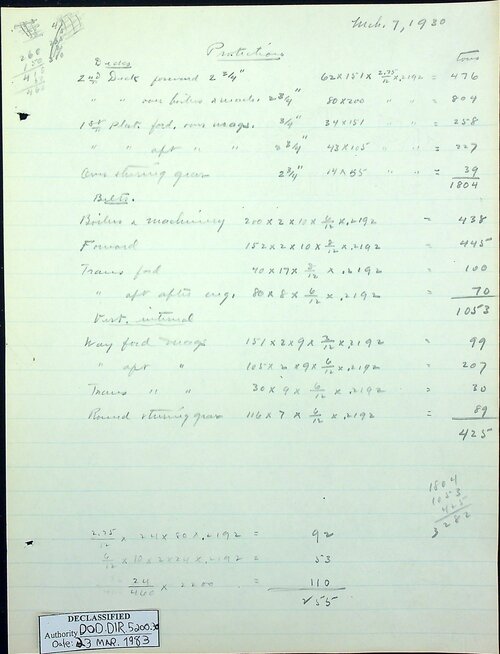 Mch. 7, 1930
Protections
tons
Decks
2nd Deck forward 2 3/4" 62x151x 2.75/12 x.2192 = 476
" " over boilers & mach. 2 3/4" 80x200 " " = 804
1st Plat. ford. over mags. 3/4" 34x151 " " = 258
" " aft " " 2 3/4" 43x105 " " = 227
Over steering gear 2 3/4" 14x55 " " = 39
1804
Belts.
Boilers & machinery 200x2x10x 6/12 x.2192 = 438
Forward 152x2x10x 8/12 x.2192 = 445
Trans ford 40x17x 8/12 x.2192 = 100
" aft after eng. 80x8x 6/12 x.2192 = 70
1053
Vert. internal
Way ford mags 151x2x9x 3/12 x.2192 = 99
" aft " 105x2x9x 6/12 x.2192 = 207
Trans " " 30x9x 6/12 x.2192 = 30
Round steering gear 116x7x 6/12 x.2192 = 89
425
1804
1053
425
3282
2.75/12 x 24x80x.2192 = 92
6/12 x10x2x24x.2192 = 53
24/460 x 2200 = 110
255
DECLASSIFIED
Authority DOD.DIR.5200.30
Date: 23 MAR. 1983